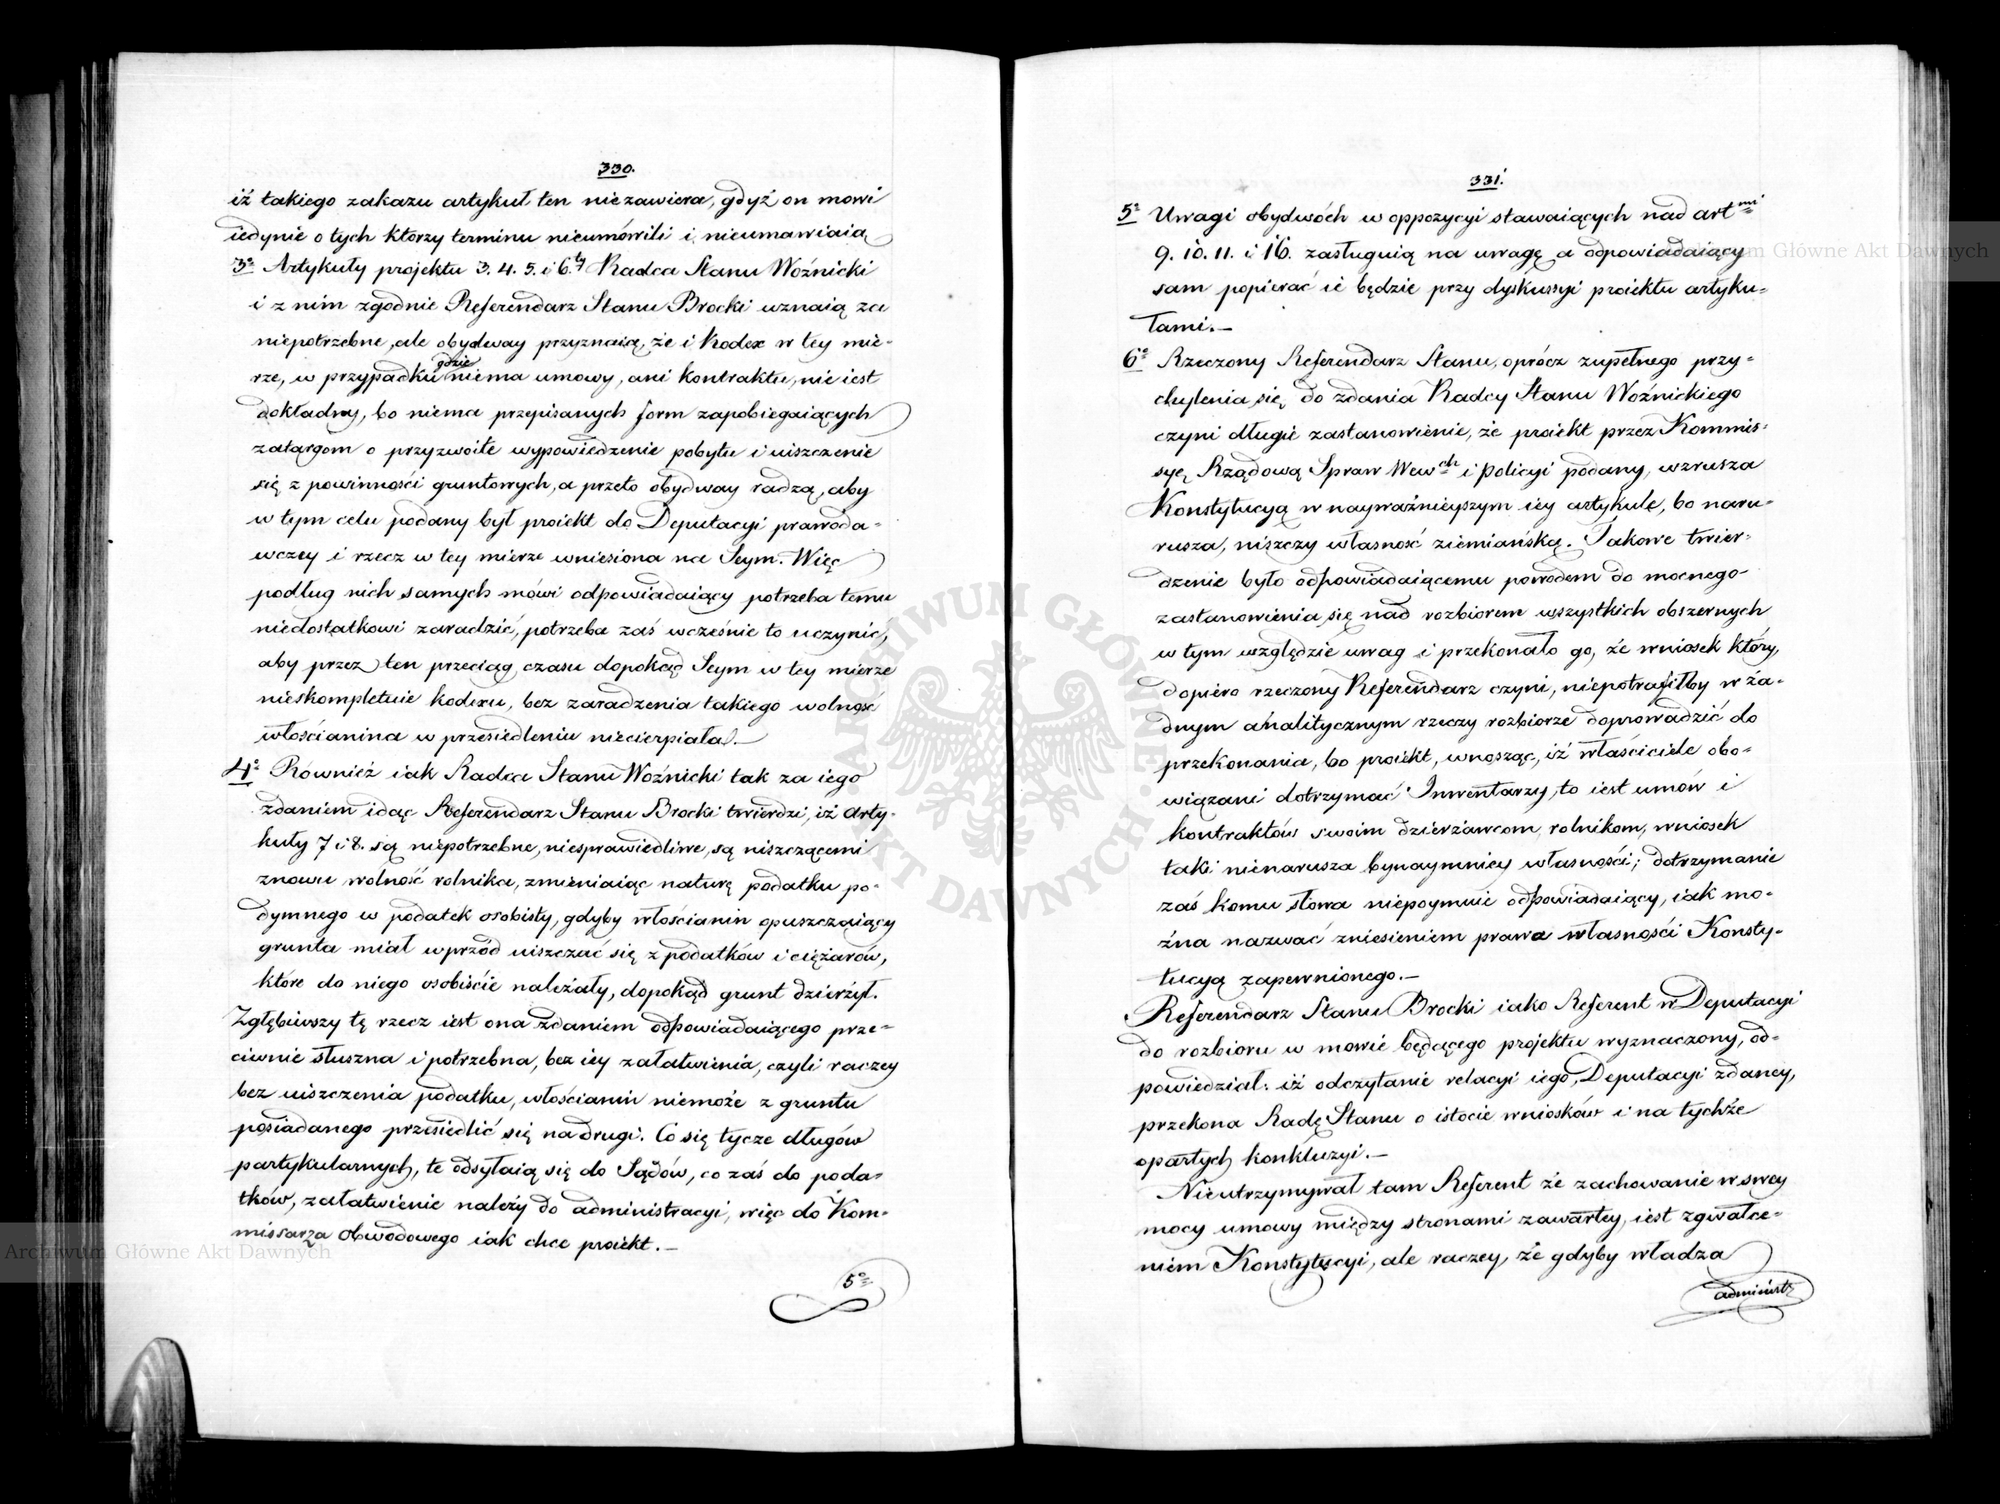 330.
iż takiego zakazu artykuł ten niezawiera, gdyż on mowi
iedynie o tych ktorzy terminu nieumówili i nieumawiaią
3o Artykuły projektu 3. 4. 5. i 6.ty Radca Stanu Woźnicki
i z nim zgodnie Referendarz Stanu Brocki uznaią za
niepotrzebne, ale obydway przyznaią, że i Kodex w tey mie-
rze, w przypadku gdzie niema umowy, ani kontraktu, nie iest
dokładny, bo niema przepisanych form zapobiegaiących
zatargom o przyzwoite wypowiedzenie pobytu i uiszczenie
się z powinności gruntowych, a przeto obydway radzą, aby
w tym celu podany był proiekt do Deputacyi prawoda-
wczey i rzecz w tey mierze wniesiona na Seym. Więc
podług nich samych mówi odpowiadaiący potrzeba temu
niedostatkowi zaradzić, potrzeba zaś wcześnie to uczynić,
aby przez ten przeciąg czasu dopokąd Seym w tey mierze
nieskompletuie kodexu, bez zaradzenia takiego wolność
włościanina w przesiedleniu niecierpiała.—
4o Również iak Radca Stanu Woźnicki tak za iego
zdaniem idąc Referendarz Stanu Brocki twierdzi, iż arty-
kuły 7 i 8. są niepotrzebne, niesprawiedliwe, są niszczącemi
znowu wolność rolnika, zmieniaiąc naturę podatku po-
dymnego w podatek osobisty, gdyby włościanin opuszczaiący
grunta miał wprzód uiszczać się z podatków i ciężarów,
które do niego osobiście należały, dopokąd grunt dzierżył.
Zgłębiwszy tę rzecz iest ona zdaniem odpowiadaiącego prze-
ciwnie słuszna i potrzebna, bez iey załatwienia, czyli raczey
bez uiszczenia podatku, włościanin niemoże z gruntu
posiadanego przesiedlić się na drugi. Co się tycze długów
partykularnych, te odsyłaią się do Sądów, co zaś do poda-
tków, załatwienie należy do administracyi, więc do Kom-
missarza Obwodowego iak chce proiekt.—
5o
331.
5o Uwagi obydwóch w oppozycyi stawaiących nad artmi
9. 10. 11. i 16. zasługuią na uwagę a odpowiadaiący
sam popierać ie będzie przy dyskussyi proiektu artyku-
łami.—
6o Rzeczony Referendarz Stanu, oprócz zupełnego przy-
chylenia się do zdania Radcy Stanu Woźnickiego
czyni długie zastanowienie, że proiekt przez Kommis-
syę Rządową Spraw Wewch i Policyi podany, wzrusza
Konstytucyą w nayważnieyszym iey artykule, bo naru-
rusza, niszczy własność ziemiańską. Takowe twier-
dzenie było odpowiadaiącemu powodem do mocnego
zastanowienia się nad rozbiorem wszystkich obszernych
w tym względzie uwag i przekonało go, że wniosek który
dopiero rzeczony Referendarz czyni, niepotrafiłby w ża-
dnym analitycznym rzeczy rozbiorze doprowadzić do
przekonania, bo proiekt, wnosząc, iż właściciele obo-
wiązani dotrzymać Inwentarzy, to iest umów i
kontraktów swoim dzierżawcom, rolnikom, wniosek
taki nienarusza bynaymniey własności; dotrzymanie
zaś komu słowa niepoymuie odpowiadaiący, iak mo-
żna nazwać zniesieniem prawa własności Konsty-
tucyą zapewnionego.—
Referendarz Stanu Brocki iako Referent w Deputacyi
do rozbioru w mowie będącego projektu wyznaczony, od-
powiedział: iż odczytanie relacyi iego, Deputacyi zdaney,
przekona Radę Stanu o istocie wniosków i na tychże
opartych konkluzyi.—
Nieutrzymywał tam Referent że zachowanie w swey
mocy umowy między stronami zawartey, iest zgwałce-
niem Konstytucyi, ale raczey, że gdyby władza
administr
ARCHIWUM GŁÓWNE AKT DAWNYCH
Archiwum Główne Akt Dawnych
Archiwum Główne Akt Dawnych